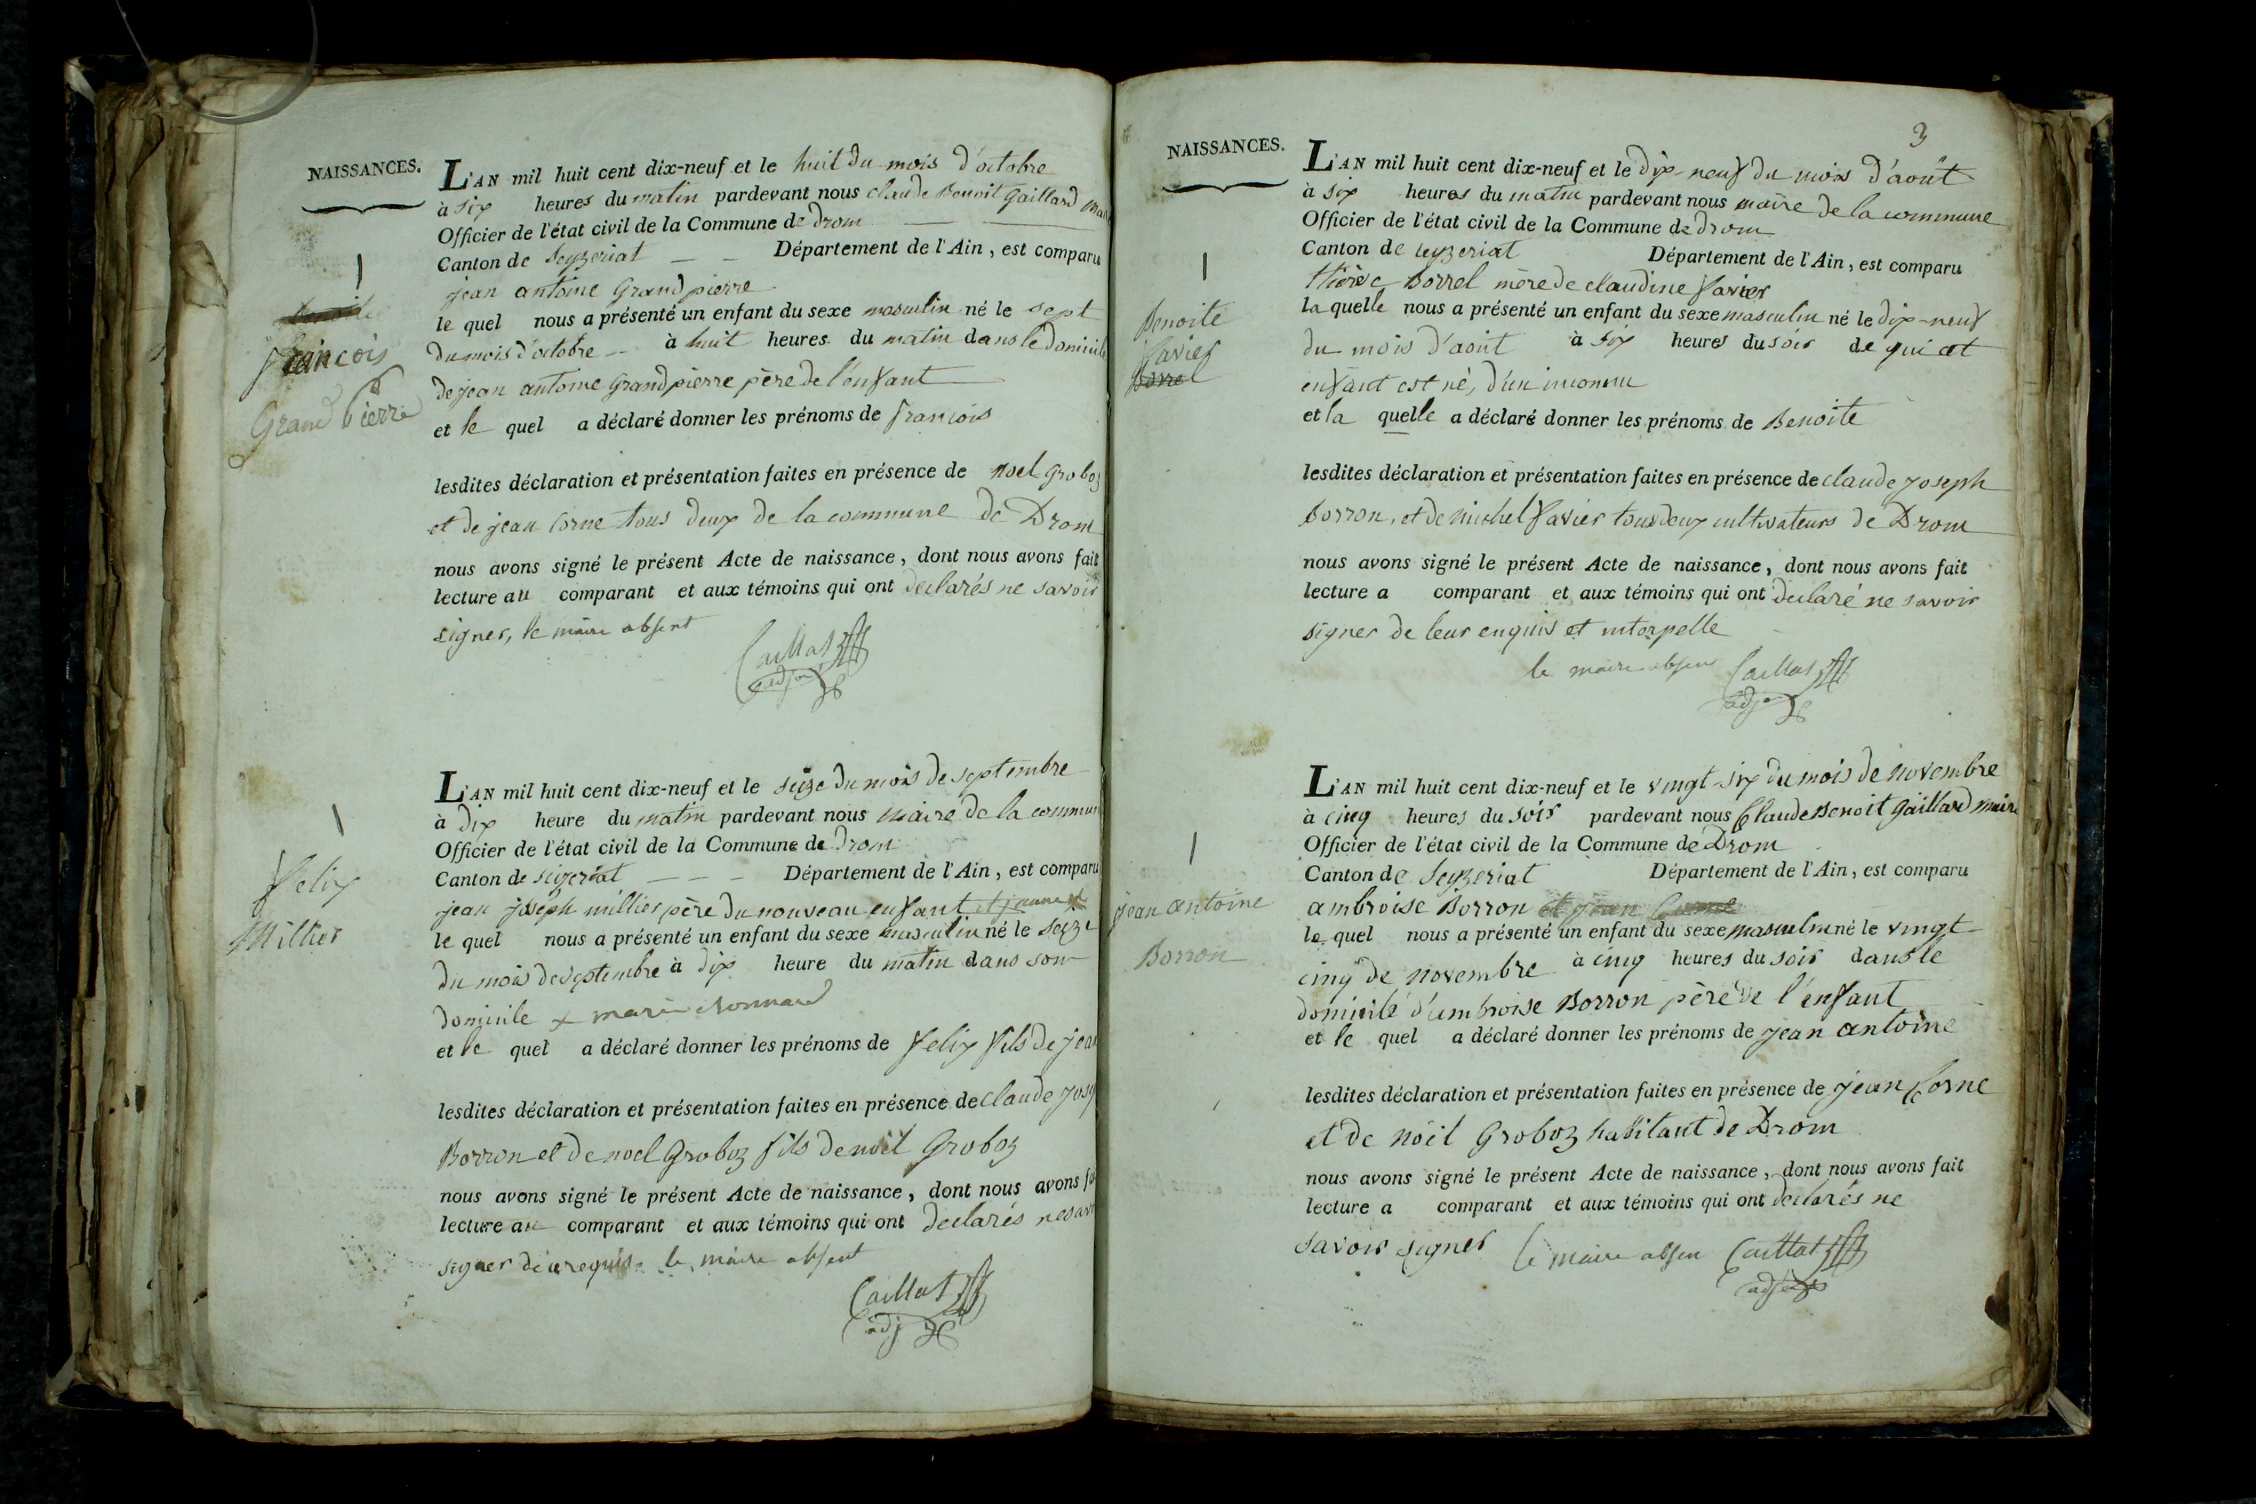 NAISSANCES.
L'AN mil huit cent dix-neuf et le huit du mois d'octobre
à six heures du matin pardevant nous claude Benoit Gaillard mai
Officier de l'état civil de la Commune de Drom
Canton de Seyzeriat Département de l'Ain, est comparu
jean antoine Grandpierre
le quel nous a présenté un enfant du sexe masculin né le sept
du mois d'octobre à huit heures du matin dans le Domicile
de jean antoine Grandpierre père de l'enfant
et le quel a déclaré donner les prénoms de francois
lesdites déclaration et présentation faites en présence de Noel Groboz
et de jean Corne tous deux de la commune de Drom
nous avons signé le présent Acte de naissance, dont nous avons fait
lecture au comparant et aux témoins qui ont declarés ne savoir
signer, le maire absent
Caillat
adj
francois
Grand Pierre
L'AN mil huit cent dix-neuf et le seize du mois de septembre
à dix heure du matin pardevant nous maire de la commun
Officier de l'état civil de la Commune de Drom
Canton de seizeriat Département de l'Ain, est comparu
jean joseph millier père du nouveau enfant
le quel nous a présenté un enfant du sexe masculin né le seize
du mois de septembre à dix heure du matin dans son
domicile x marie
et le quel a déclaré donner les prénoms de felix fils de jean
lesdites déclaration et présentation faites en présence de claude Josep
Borron et de noel Groboz fils de noel Groboz
nous avons signé le présent Acte de naissance, dont nous avons fai
lecture au comparant et aux témoins qui ont declarés ne savo
signer de ce requis le maire absent
Caillat
adj
felix
Millier
3
NAISSANCES.
L'AN mil huit cent dix-neuf et le dix-neuf du mois d'août
à six heures du matin pardevant nous maire de la commune
Officier de l'état civil de la Commune de Drom
Canton de ceyzeriat Département de l'Ain, est comparu
Borrel mère de claudine favier
la quelle nous a présenté un enfant du sexe masculin né le dix-neuf
du mois d'aout à six heures du soir de qui cet
enfant est né, d'un inconnu
et la quelle a déclaré donner les prénoms de Benoite
lesdites déclaration et présentation faites en présence de claude joseph
borron, et de michel favier tous deux cultivateurs de Drom
nous avons signé le présent Acte de naissance, dont nous avons fait
lecture a comparant et aux témoins qui ont declaré ne savoir
signer de leur enquis et interpelle
le maire absent Caillat
adj
Benoite
favier
Borrel
L'AN mil huit cent dix-neuf et le vingt-six du mois de novembre
à cinq heures du soir pardevant nous Claude Benoit Gaillard maire
Officier de l'état civil de la Commune de Drom
Canton de Seyzeriat Département de l'Ain, est comparu
ambroise Borron et jean Corne
le quel nous a présenté un enfant du sexe masculin né le vingt
cinq de novembre à cinq heures du soir dans le
domicile d'ambroise Borron père de l'enfant
et le quel a déclaré donner les prénoms de jean antoine
lesdites déclaration et présentation faites en présence de jean Corne
et de nöel Groboz habitant de Drom
nous avons signé le présent Acte de naissance, dont nous avons fait
lecture a comparant et aux témoins qui ont declarés ne
savoir signer le maire absen Caillat
adj
jean antoine
Borron